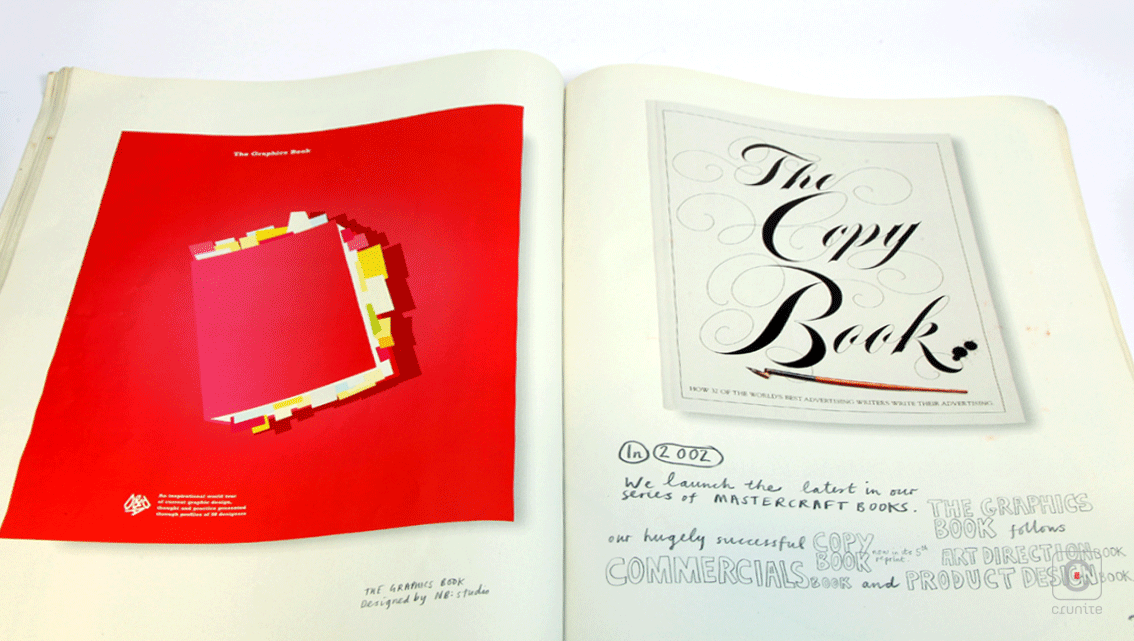 The Graphics Book
D&AD
An inspirational world tour
of current graphic design,
thought and practice presented
through profiles of 30 designers
THE GRAPHICS BOOK
Designed by NB:studio
The
Copy
Book
HOW 32 OF THE WORLD'S BEST ADVERTISING WRITERS WRITE THEIR ADVERTISING.
In 2002
We launch the latest in our
series of MASTERCRAFT BOOKS. THE GRAPHICS
BOOK follows
our hugely successful COPY
BOOK now in its 5th
reprint. ART DIRECTION BOOK
COMMERCIALS BOOK and PRODUCT DESIGN BOOK.
crunite